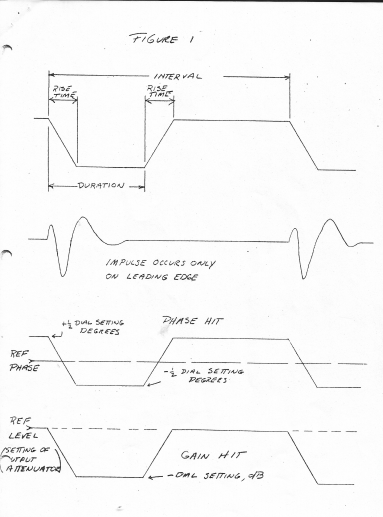 FIGURE 1
INTERVAL
RISE
TIME
RISE
TIME
DURATION
IMPULSE OCCURS ONLY
ON LEADING EDGE
+½ DIAL SETTING
DEGREES
PHASE HIT
REF
PHASE
-½ DIAL SETTING
DEGREES
REF
LEVEL
(SETTING OF
OUTPUT
ATTENUATOR)
GAIN HIT
- DIAL SETTING, dB